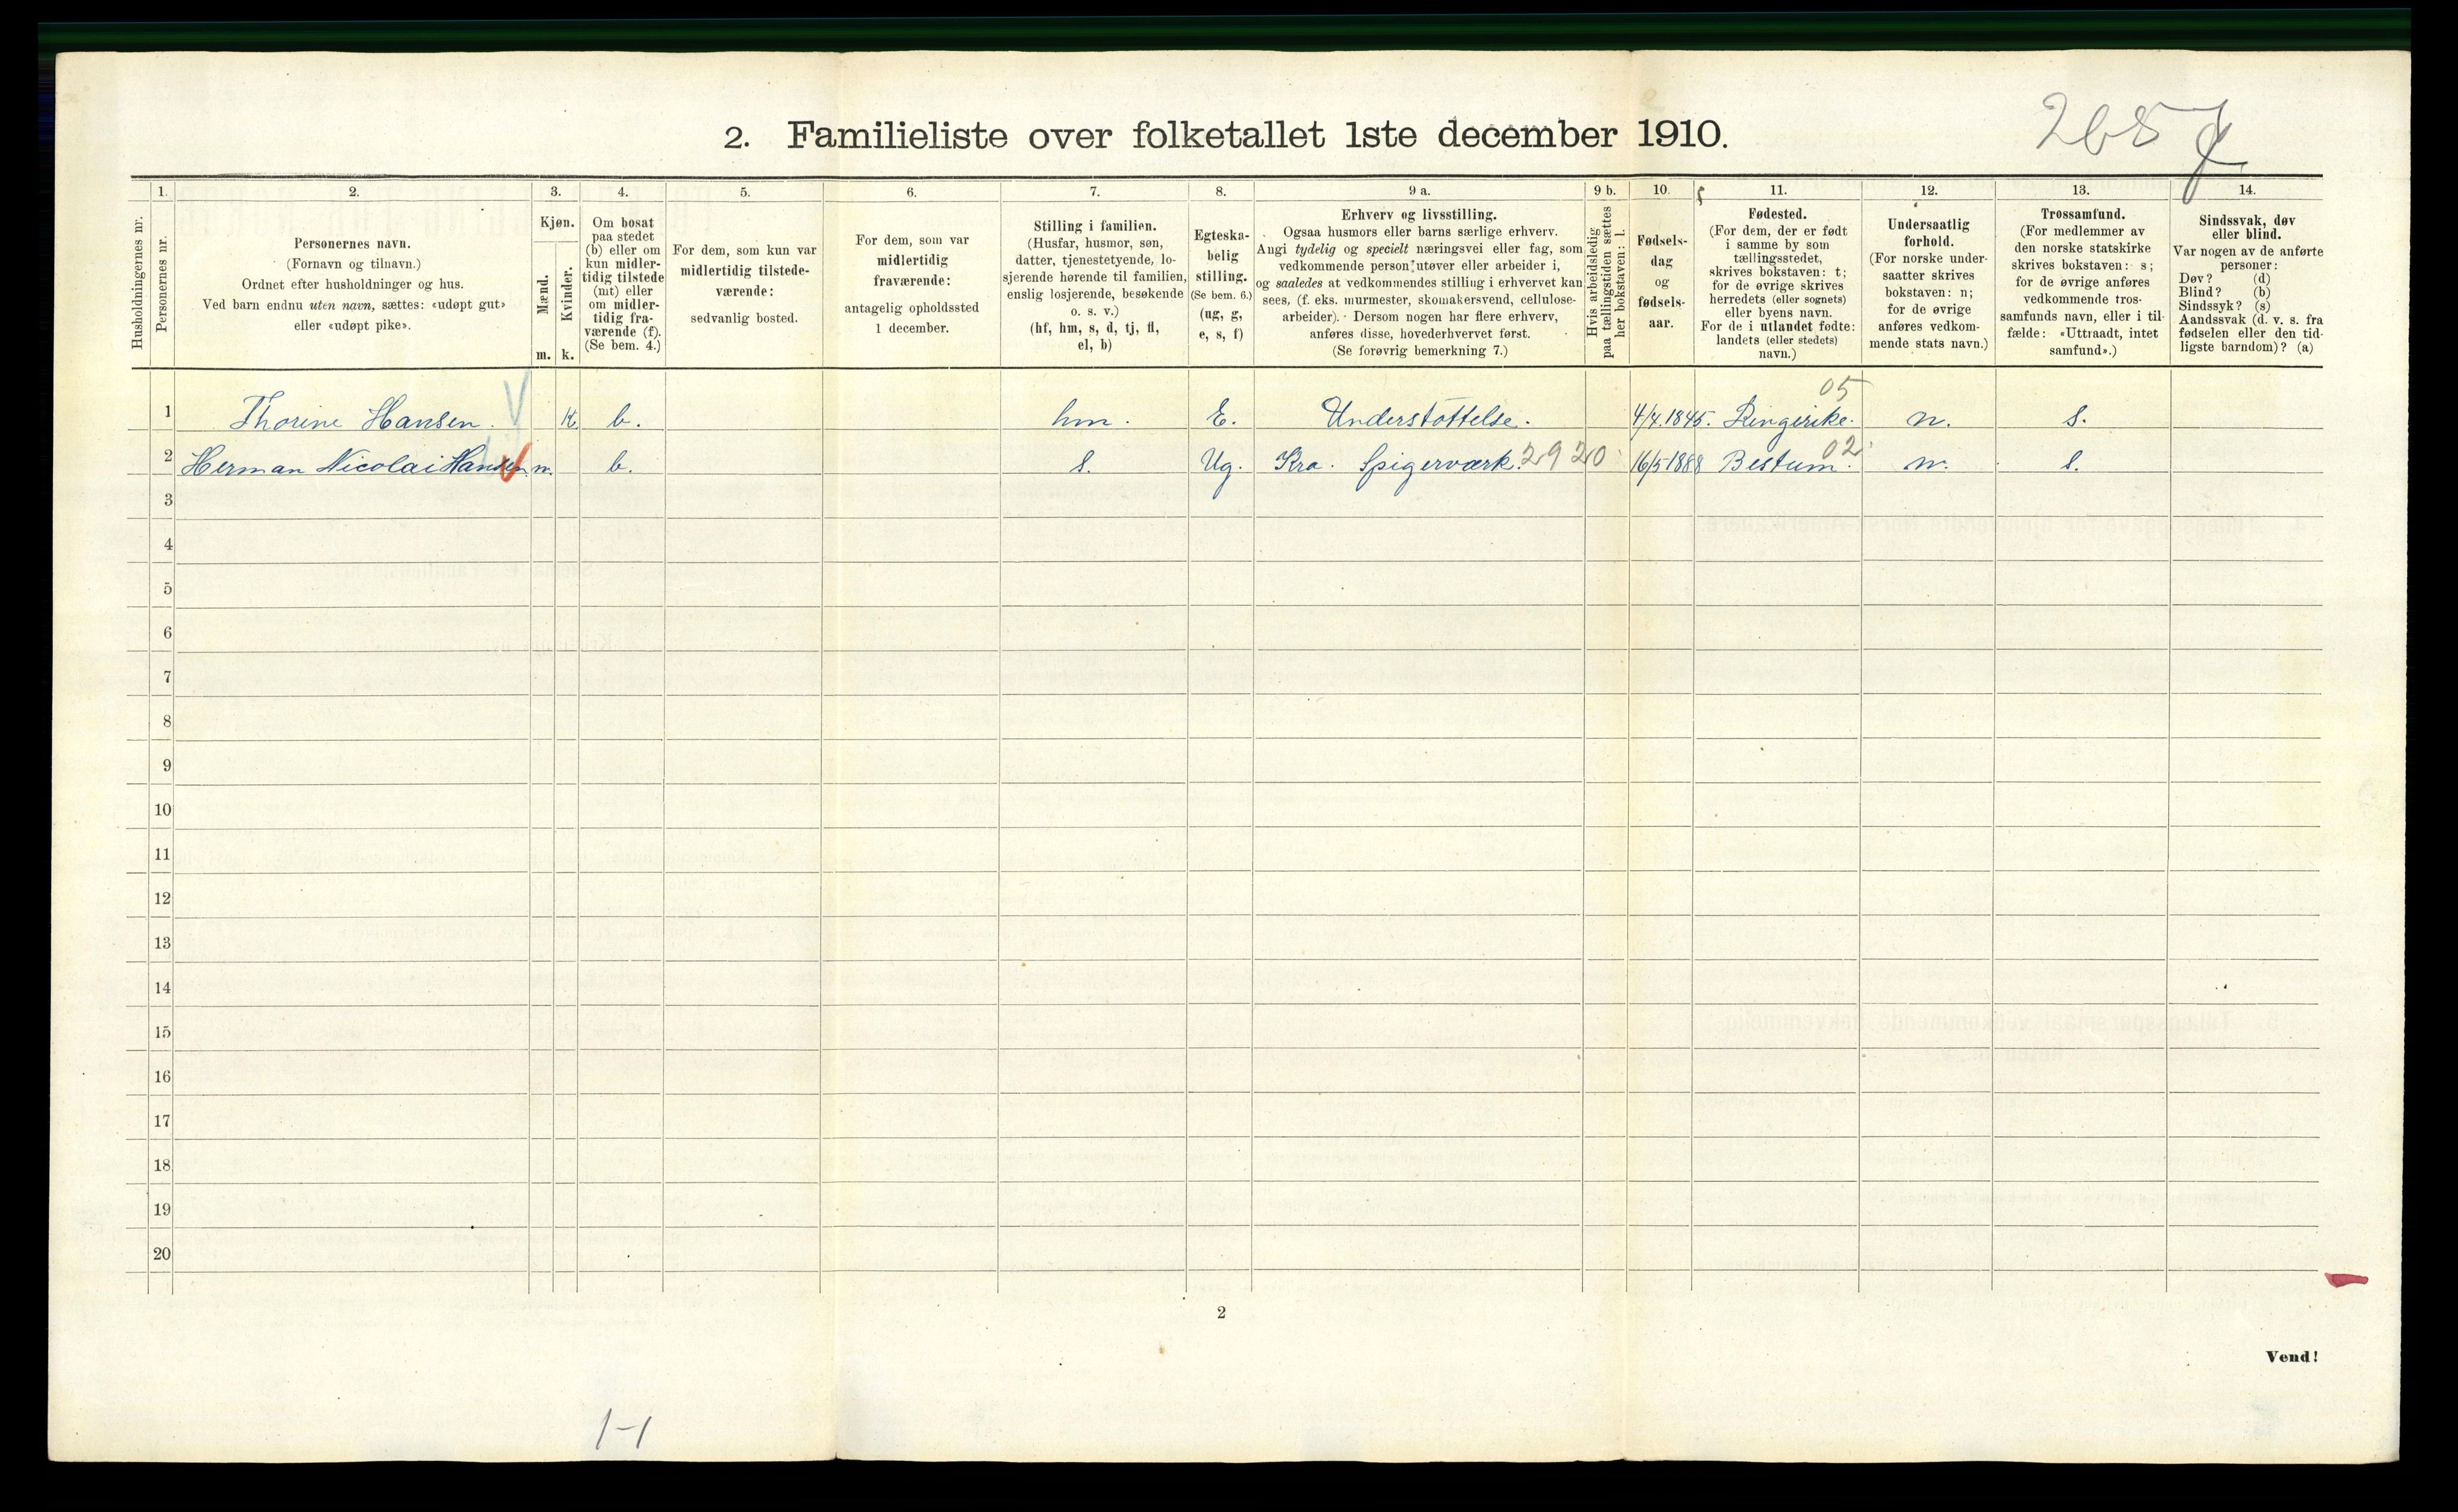 2. Familieliste over folketallet 1ste december 1910.
1. 2. 3. 4. 5. 6. 7. 8. 9 a. 9 b. 10. 11. 12. 13. 14.
Husholdningernes nr.
Personernes nr.
Personernes navn.
(Fornavn og tilnavn.)
Ordnet efter husholdninger og hus.
Ved barn endnu uten navn, sættes: «udøpt gut»
eller «udøpt pike».
Kjøn.
Mænd.
Kvinder.
m. k.
Om bosat
paa stedet
(b) eller om
kun midler-
tidig tilstede
(mt) eller
om midler-
tidig fra-
værende (f).
(Se bem. 4.)
For dem, som kun var
midlertidig tilstede-
værende:
sedvanlig bosted.
For dem, som var
midlertidig
fraværende:
antagelig opholdssted
1 december.
Stilling i familien.
(Husfar, husmor, søn,
datter, tjenestetyende, lo-
sjerende hørende til familien,
enslig losjerende, besøkende
o. s. v.)
(hf, hm, s, d, tj, fl,
el, b)
Egteska-
belig
stilling.
(Se bem. 6.)
(ug, g,
e, s, f)
Erhverv og livsstilling.
Ogsaa husmors eller barns særlige erhverv.
Angi tydelig og specielt næringsvei eller fag, som
vedkommende person utøver eller arbeider i,
og saaledes at vedkommendes stilling i erhvervet kan
sees, (f. eks. murmester, skomakersvend, cellulose-
arbeider). Dersom nogen har flere erhverv,
anføres disse, hovederhvervet først.
(Se forøvrig bemerkning 7.)
Hvis arbeidsledig
paa tællingstiden sættes
her bokstaven: l.
Fødsels-
dag
og
fødsels-
aar.
Fødested.
(For dem, der er født
i samme by som
tællingsstedet,
skrives bokstaven: t;
for de øvrige skrives
herredets (eller sognets)
eller byens navn.
For de i utlandet fødte:
landets (eller stedets)
navn.)
Undersaatlig
forhold.
(For norske under-
saatter skrives
bokstaven: n;
for de øvrige
anføres vedkom-
mende stats navn.)
Trossamfund.
(For medlemmer av
den norske statskirke
skrives bokstaven: s;
for de øvrige anføres
vedkommende tros-
samfunds navn, eller i til-
fælde: «Uttraadt, intet
samfund».)
Sindssvak, døv
eller blind.
Var nogen av de anførte
personer:
Døv? (d)
Blind? (b)
Sindssyk? (s)
Aandssvak (d. v. s. fra
fødselen eller den tid-
ligste barndom)? (a)
05
1 Thorine Hansen. k b. hm. E. Understøttelse. 4/4.1845. Ringerike. n. s.
2 Herman Nicolai Hansen m. b. s. Ug. Kra. Spigerværk. 2920 16/5 1888 Bestum. 02 n. s.
3
4
5
6
7
8
9
10
11
12
13
14
15
16
17
18
19
20
2
Vend!
1-1